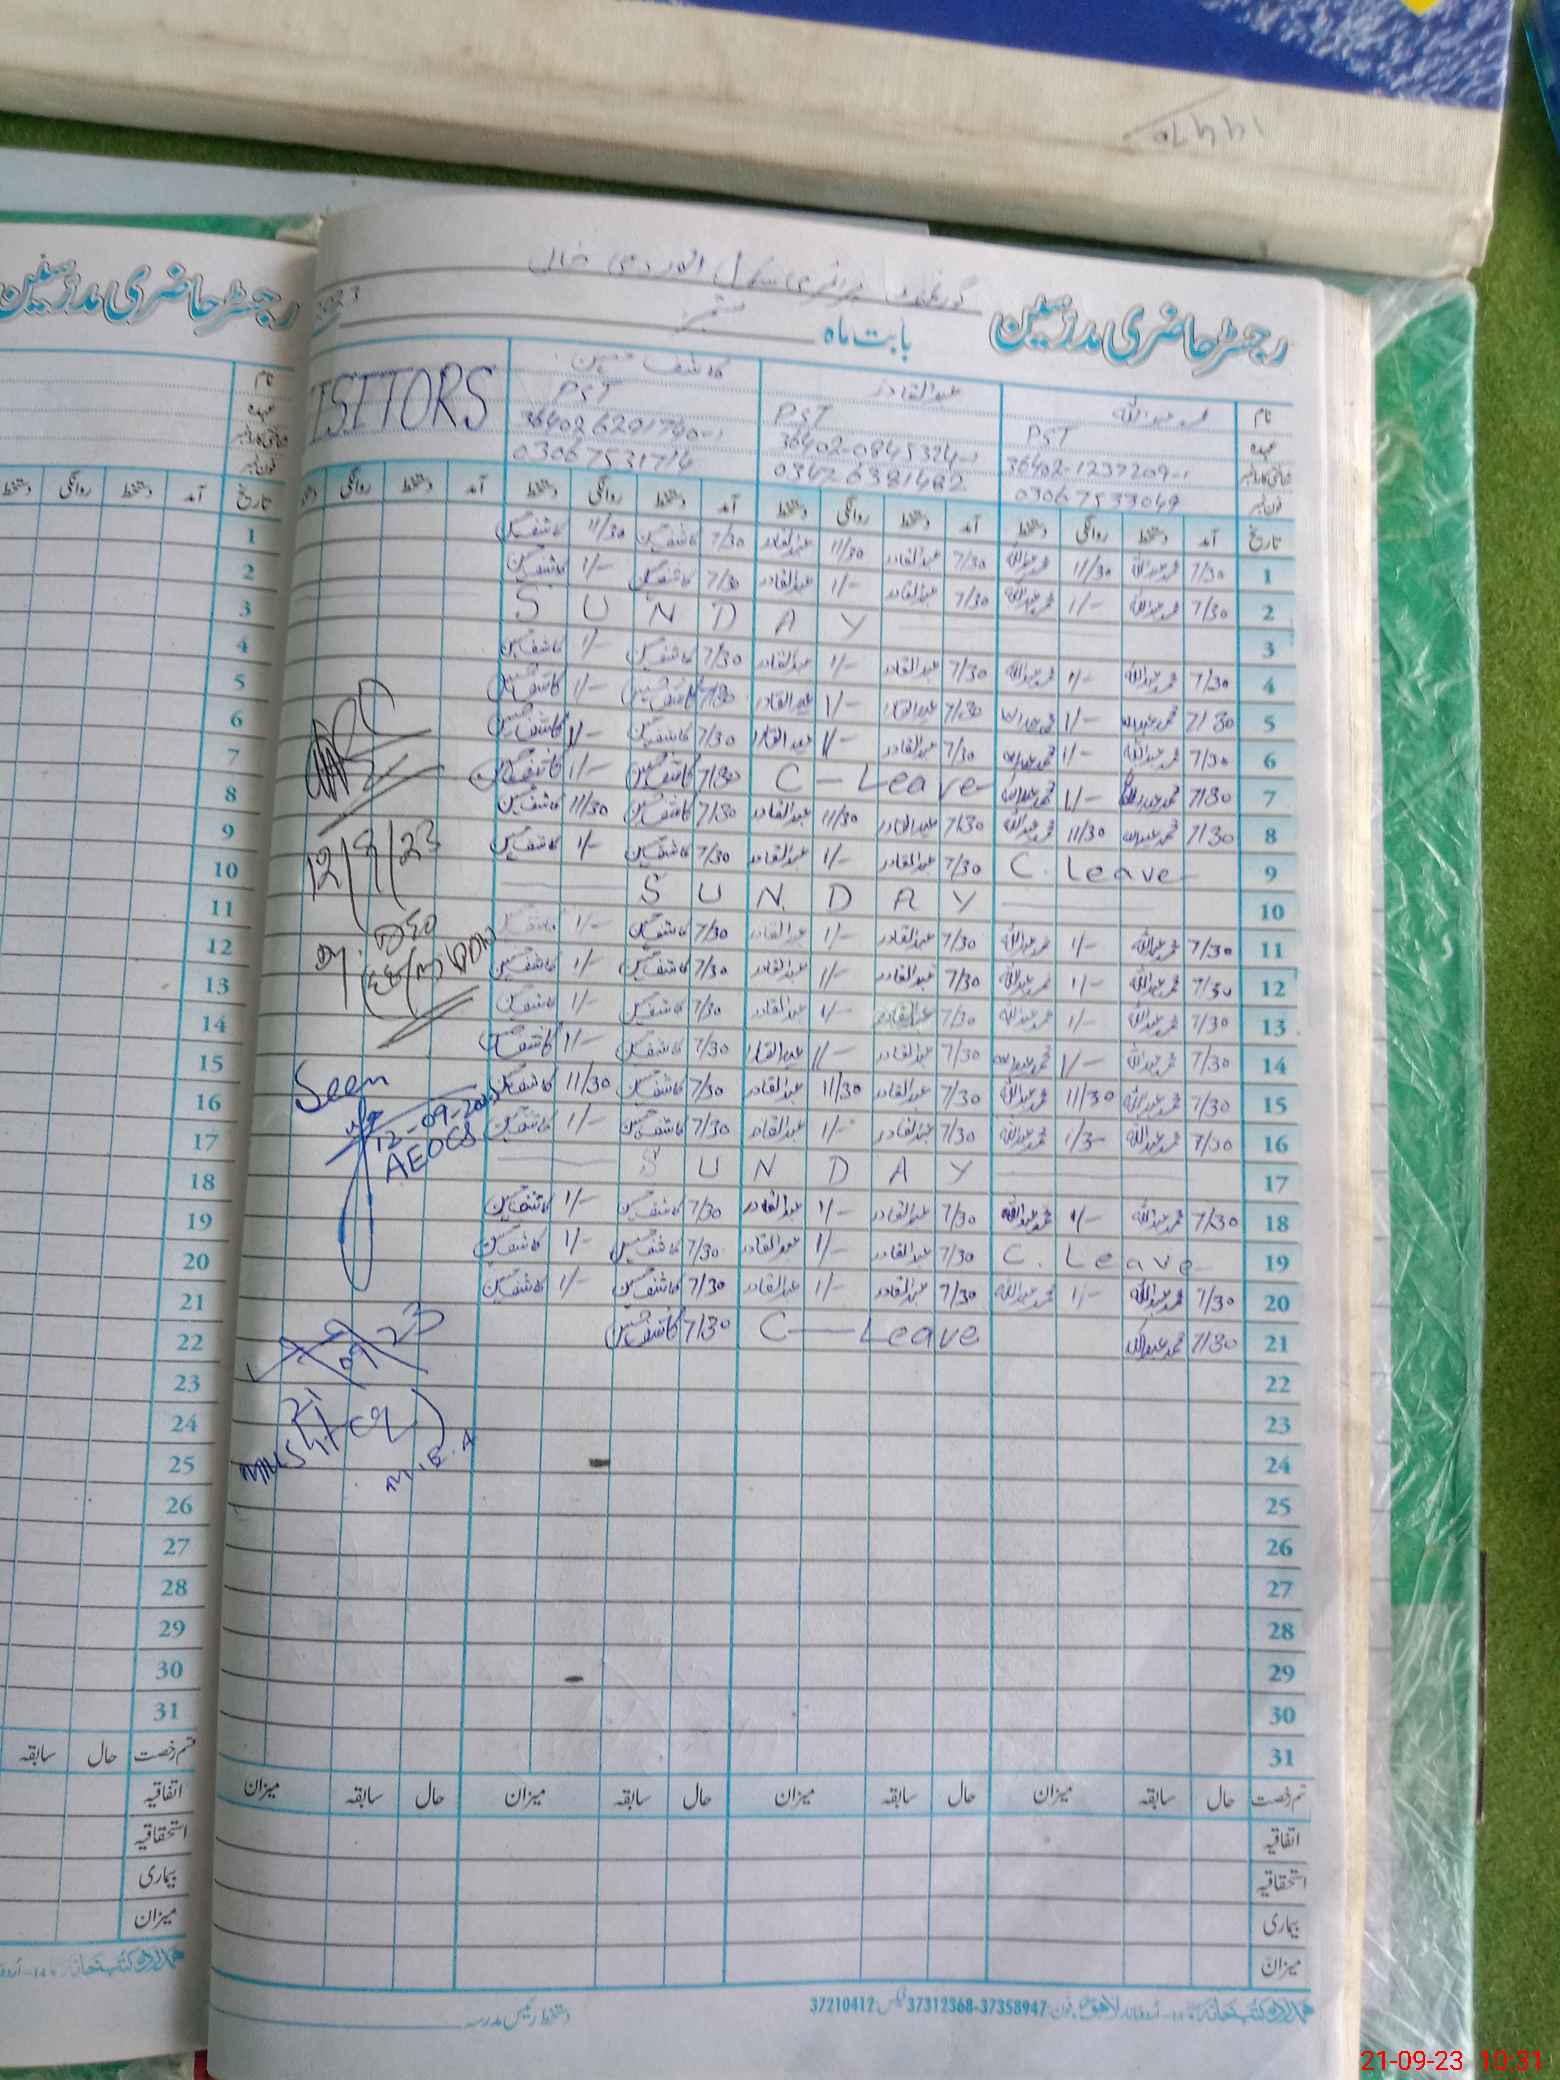 رجسٹر حاضری مدرسین
رجسٹر حاضری مدرسین بابت ماہ ستمبر
نام محمد عبداللہ عبدالقادر کاشف حسین ISITORS
عہدہ PST PST PST
36402-1237209-1 36402-0845324-1 364026291740-1
فون نمبر 03067533049 03476381482 03067531714
تاریخ آمد دستخط روانگی دستخط آمد دستخط روانگی دستخط آمد دستخط روانگی دستخط آمد دستخط روانگی
1 7/30 محمد عبداللہ 11/30 محمد عبداللہ 7/30 عبدالقادر 11/30 عبدالقادر 7/30 کاشف حسین 11/30 کاشف حسین
2 7/30 محمد عبداللہ 1/- محمد عبداللہ 7/30 عبدالقادر 1/- عبدالقادر 7/30 کاشف حسین 1/- کاشف حسین
3 S U N D A Y
4 7/30 محمد عبداللہ 1/- محمد عبداللہ 7/30 عبدالقادر 1/- عبدالقادر 7/30 کاشف حسین 1/- کاشف حسین
5 7/30 محمد عبداللہ 1/- محمد عبداللہ 7/30 عبدالقادر 1/- عبدالقادر 7/30 کاشف حسین 1/- کاشف حسین
6 7/30 محمد عبداللہ 1/- محمد عبداللہ 7/30 عبدالقادر 1/- عبدالقادر 7/30 کاشف حسین 1/- کاشف حسین
7 7/30 محمد عبداللہ 1/- محمد عبداللہ C - Leave 7/30 کاشف حسین 1/- کاشف حسین
8 7/30 محمد عبداللہ 11/30 محمد عبداللہ 7/30 عبدالقادر 11/30 عبدالقادر 7/30 کاشف حسین 11/30 کاشف حسین
9 C. Leave 7/30 عبدالقادر 1/- عبدالقادر 7/30 کاشف حسین 1/- کاشف حسین
12/9/23
10 S U N D A Y
11 7/30 محمد عبداللہ 1/- محمد عبداللہ 7/30 عبدالقادر 1/- عبدالقادر 7/30 کاشف حسین 1/- کاشف حسین
12 7/30 محمد عبداللہ 1/- محمد عبداللہ 7/30 عبدالقادر 1/- عبدالقادر 7/30 کاشف حسین 1/- کاشف حسین
13 7/30 محمد عبداللہ 1/- محمد عبداللہ 7/30 عبدالقادر 1/- عبدالقادر 7/30 کاشف حسین 1/- کاشف حسین
14 7/30 محمد عبداللہ 1/- محمد عبداللہ 7/30 عبدالقادر 1/- عبدالقادر 7/30 کاشف حسین 1/- کاشف حسین
Seen
15 7/30 محمد عبداللہ 11/30 محمد عبداللہ 7/30 عبدالقادر 11/30 عبدالقادر 7/30 کاشف حسین 11/30 کاشف حسین
12-09-2023
16 7/30 محمد عبداللہ 1/3- محمد عبداللہ 7/30 عبدالقادر 1/- عبدالقادر 7/30 کاشف حسین 1/- کاشف حسین
AEOCS
17 S U N D A Y
18 7/30 محمد عبداللہ 1/- محمد عبداللہ 7/30 عبدالقادر 1/- عبدالقادر 7/30 کاشف حسین 1/- کاشف حسین
19 C. Leave 7/30 عبدالقادر 1/- عبدالقادر 7/30 کاشف حسین 1/- کاشف حسین
20 7/30 محمد عبداللہ 1/- محمد عبداللہ 7/30 عبدالقادر 1/- عبدالقادر 7/30 کاشف حسین 1/- کاشف حسین
21 7/30 محمد عبداللہ C - Leave 7/30 کاشف حسین
21 09 23
22
23
M.E.A
24
25
26
27
28
29
30
31
قسم رخصت حال سابقہ میزان حال سابقہ میزان حال سابقہ میزان حال سابقہ میزان
اتفاقیہ
استحقاقیہ
بیماری
میزان
فون: 37312368-37358947 فیکس: 37210412
دستخط رئیس مدرسہ
نام
عہدہ
فون نمبر
تاریخ آمد دستخط روانگی دستخط
1
2
3
4
5
6
7
8
9
10
11
12
13
14
15
16
17
18
19
20
21
22
23
24
25
26
27
28
29
30
31
قسم رخصت حال سابقہ
اتفاقیہ
استحقاقیہ
بیماری
میزان
21-09-23 10:31